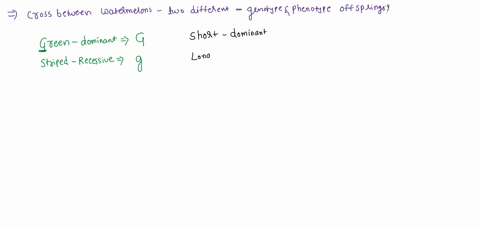 ⇒ Cross between Watermelons - two different - genotype & phenotype offsprings?
Green - dominant ⇒ G    Short - dominant
Striped - Recessive ⇒ g    Lono